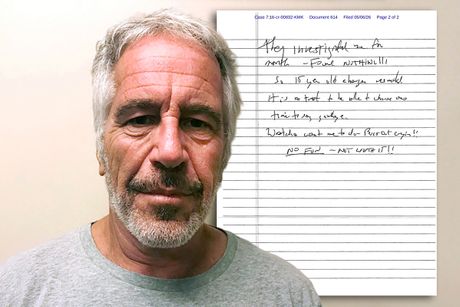 Case 7:16-cr-00832-KMK Document 614 Filed 05/06/26 Page 2 of 2
They investigated me for
month - Found NOTHING!!!
So 15 year old charges
It is a treat to be able to choose ones
time to say goodbye.
want me to do - Burst out cryin!!
NO FUN - NOT WORTH IT!!